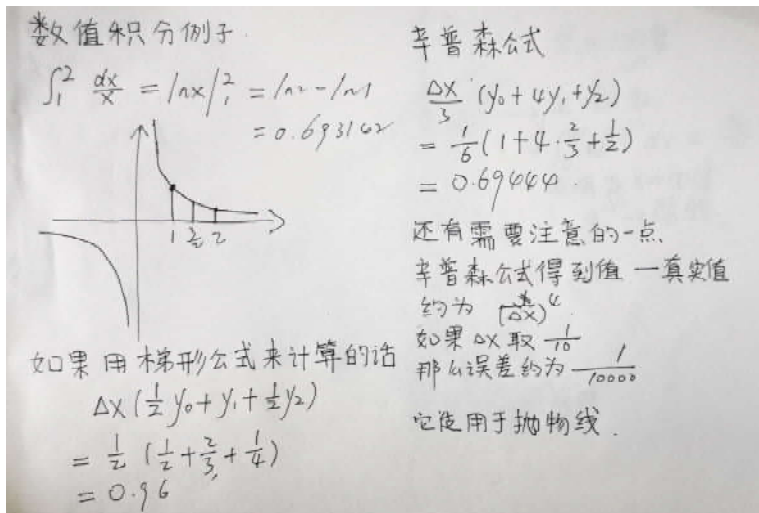 数值积分例子.
∫₁² dx/x = lnx|₁² = ln2 - ln1
= 0.693142
1 3/2 2
如果用梯形公式来计算的话
Δx(1/2 y₀ + y₁ + 1/2 y₂)
= 1/2 (1/2 + 2/3 + 1/4)
= 0.96
辛普森公式
Δx/3 (y₀ + 4y₁ + y₂)
= 1/6 (1 + 4·2/3 + 1/2)
= 0.69444.
还有需要注意的一点
辛普森公式得到值 — 真实值
约为 (Δx)⁴
如果Δx取 1/10
那么误差约为 1/10000
它使用于抛物线.